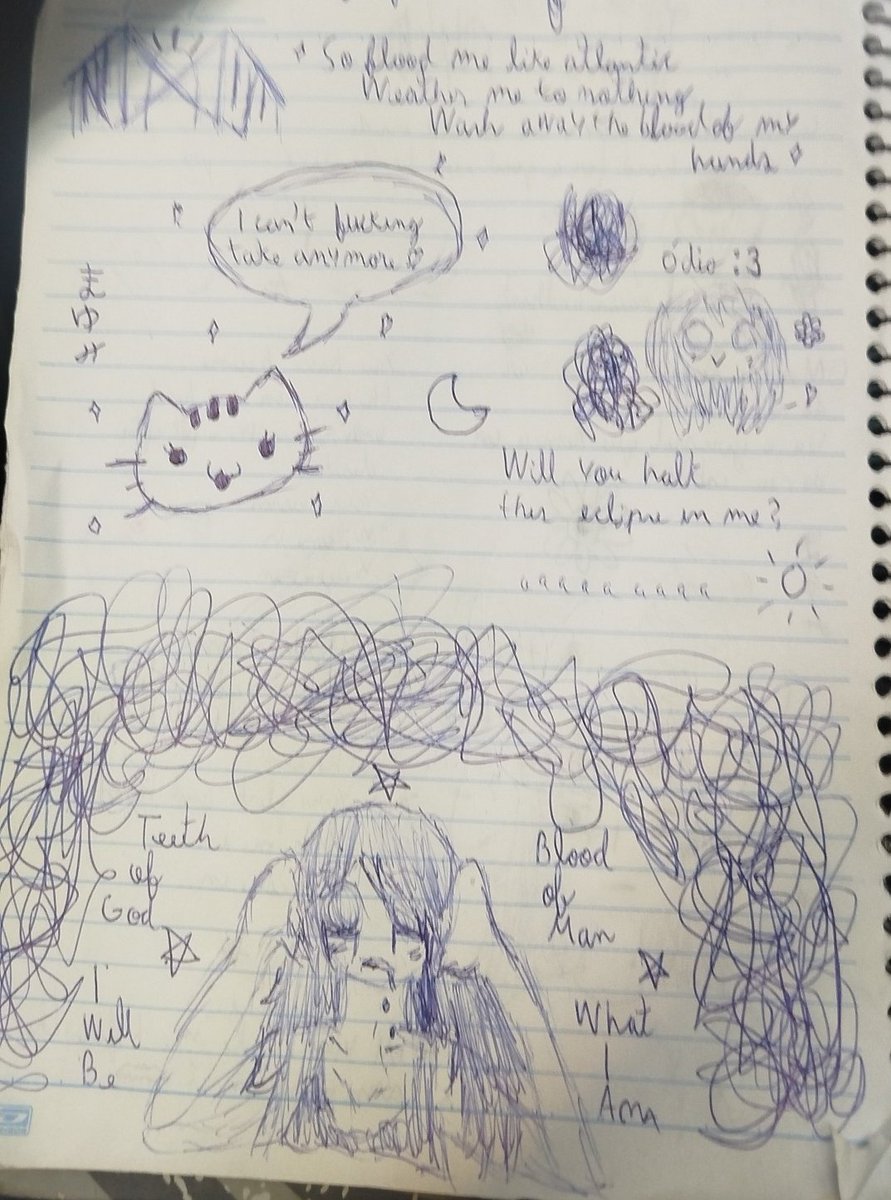 So flood me like atlantic
Weather me to nothing
Wash away the blood of my
hands
I can't fucking
take anymore
ódio :3
Will you halt
this eclipse in me?
aaaaaaaa
Teeth
of
God
Blood
of
Man
I
Will
Be
What
I
Am